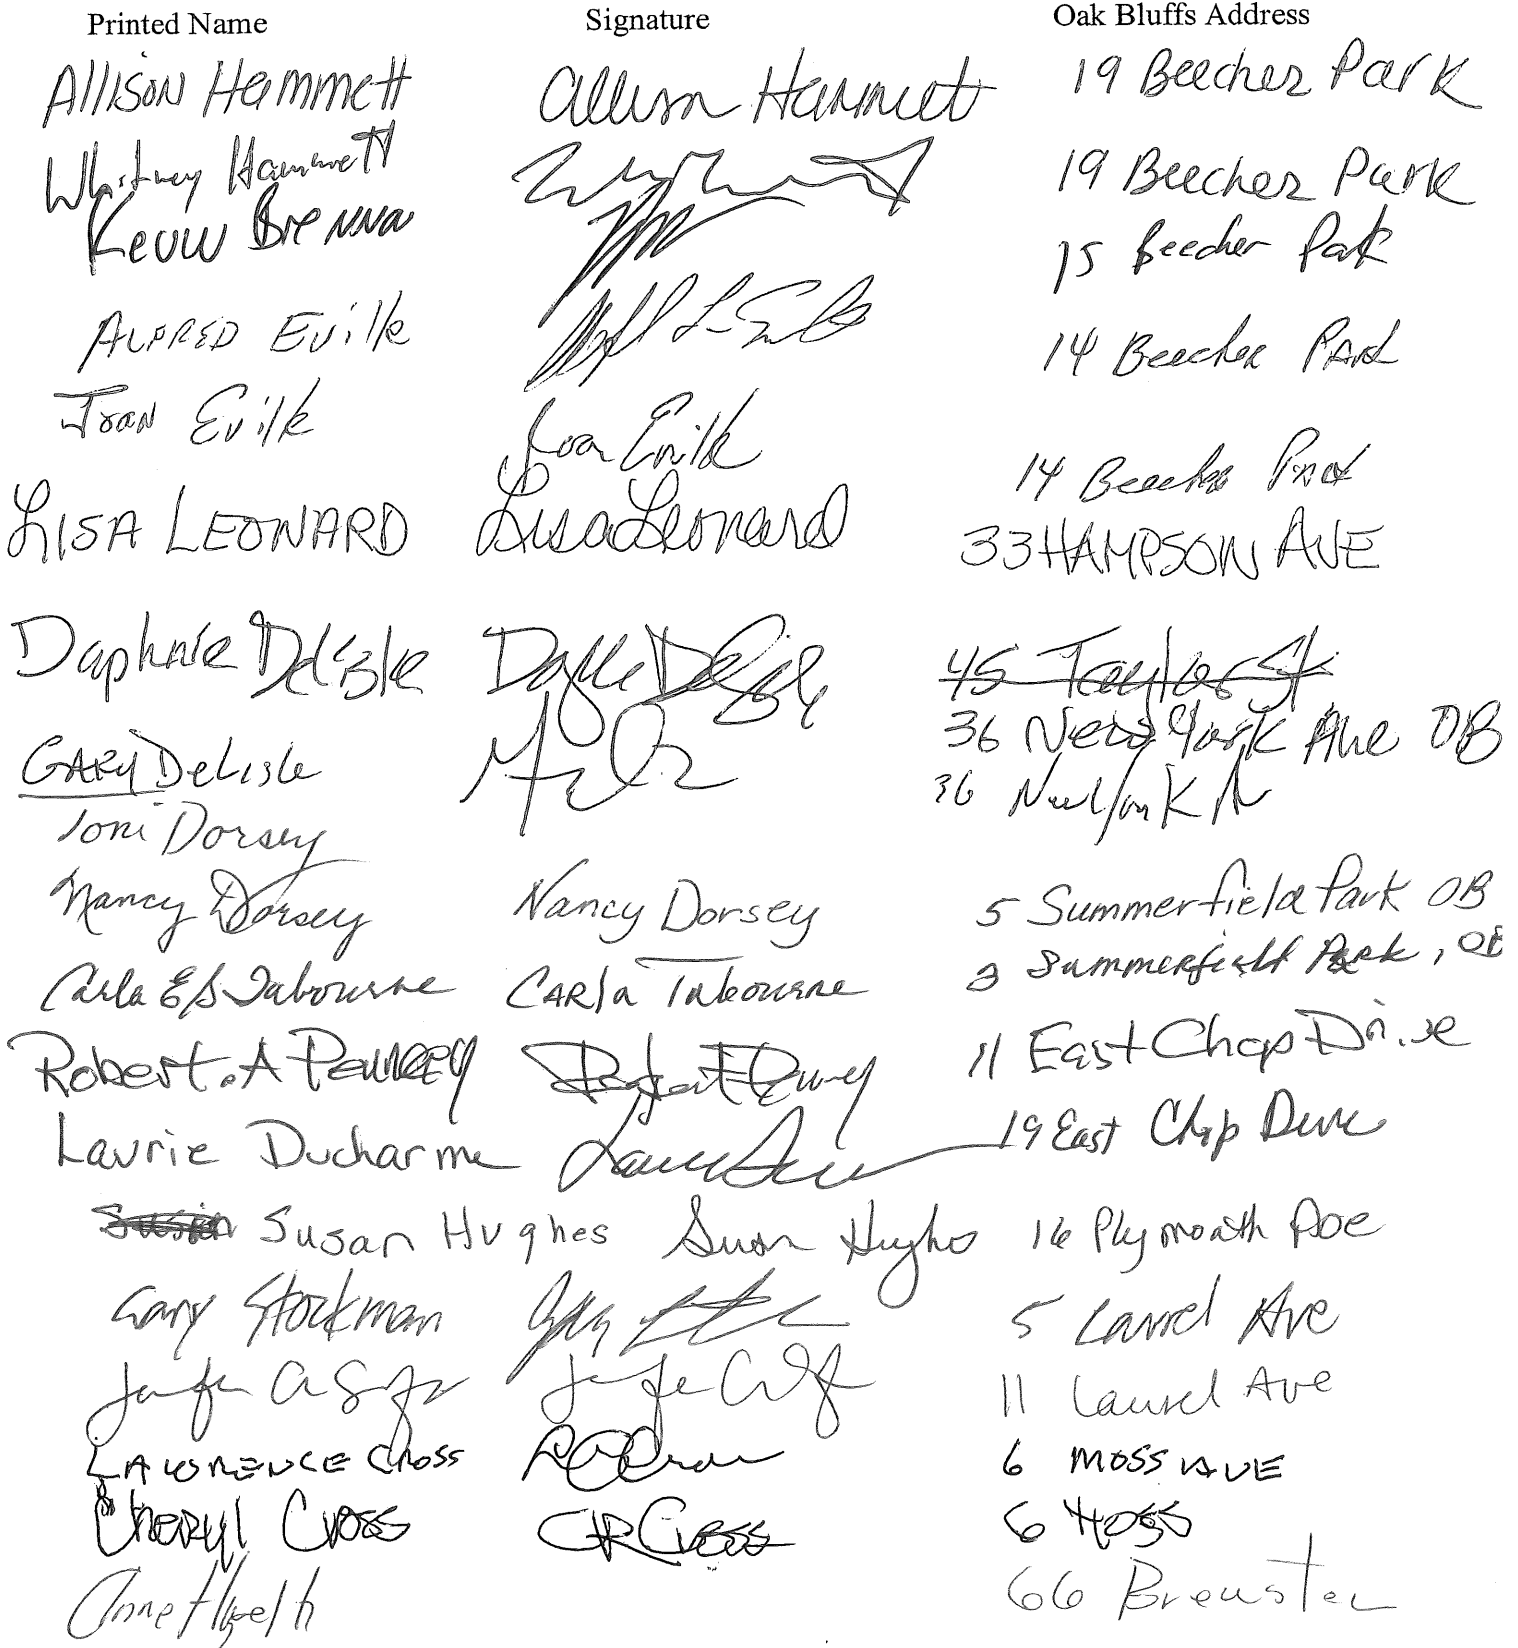 Printed Name Signature Oak Bluffs Address
Allison Hammett Allison Hammett 19 Beecher Park
Whitney Hammett 19 Beecher Park
Kevin Brennan 15 Beecher Park
ALFRED Evilk 14 Beecher Park
Joan Evilk Joan Evilk 14 Beecher Park
LISA LEONARD Lisa Leonard 33 HAMPSON AVE
Daphnie Delisle 45 Taylor St
36 New York Ave OB
GARY Delisle 36 New York
Toni Dorsey
Nancy Dorsey Nancy Dorsey 5 Summerfield Park OB
Carla Tabourne CARla Tabourne 3 Summerfield Park, OB
Robert. A 11 East Chop Drive
Laurie Ducharme 19 East Chop Drive
Susan Susan Hughes Susan Hughes 16 Plymouth
Gary Stockman 5 Laurel Ave
11 Laurel Ave
LAWRENCE CROSS 6 MOSS AVE
Cheryl Cross CR Cross 6 Moss
66 Brewster